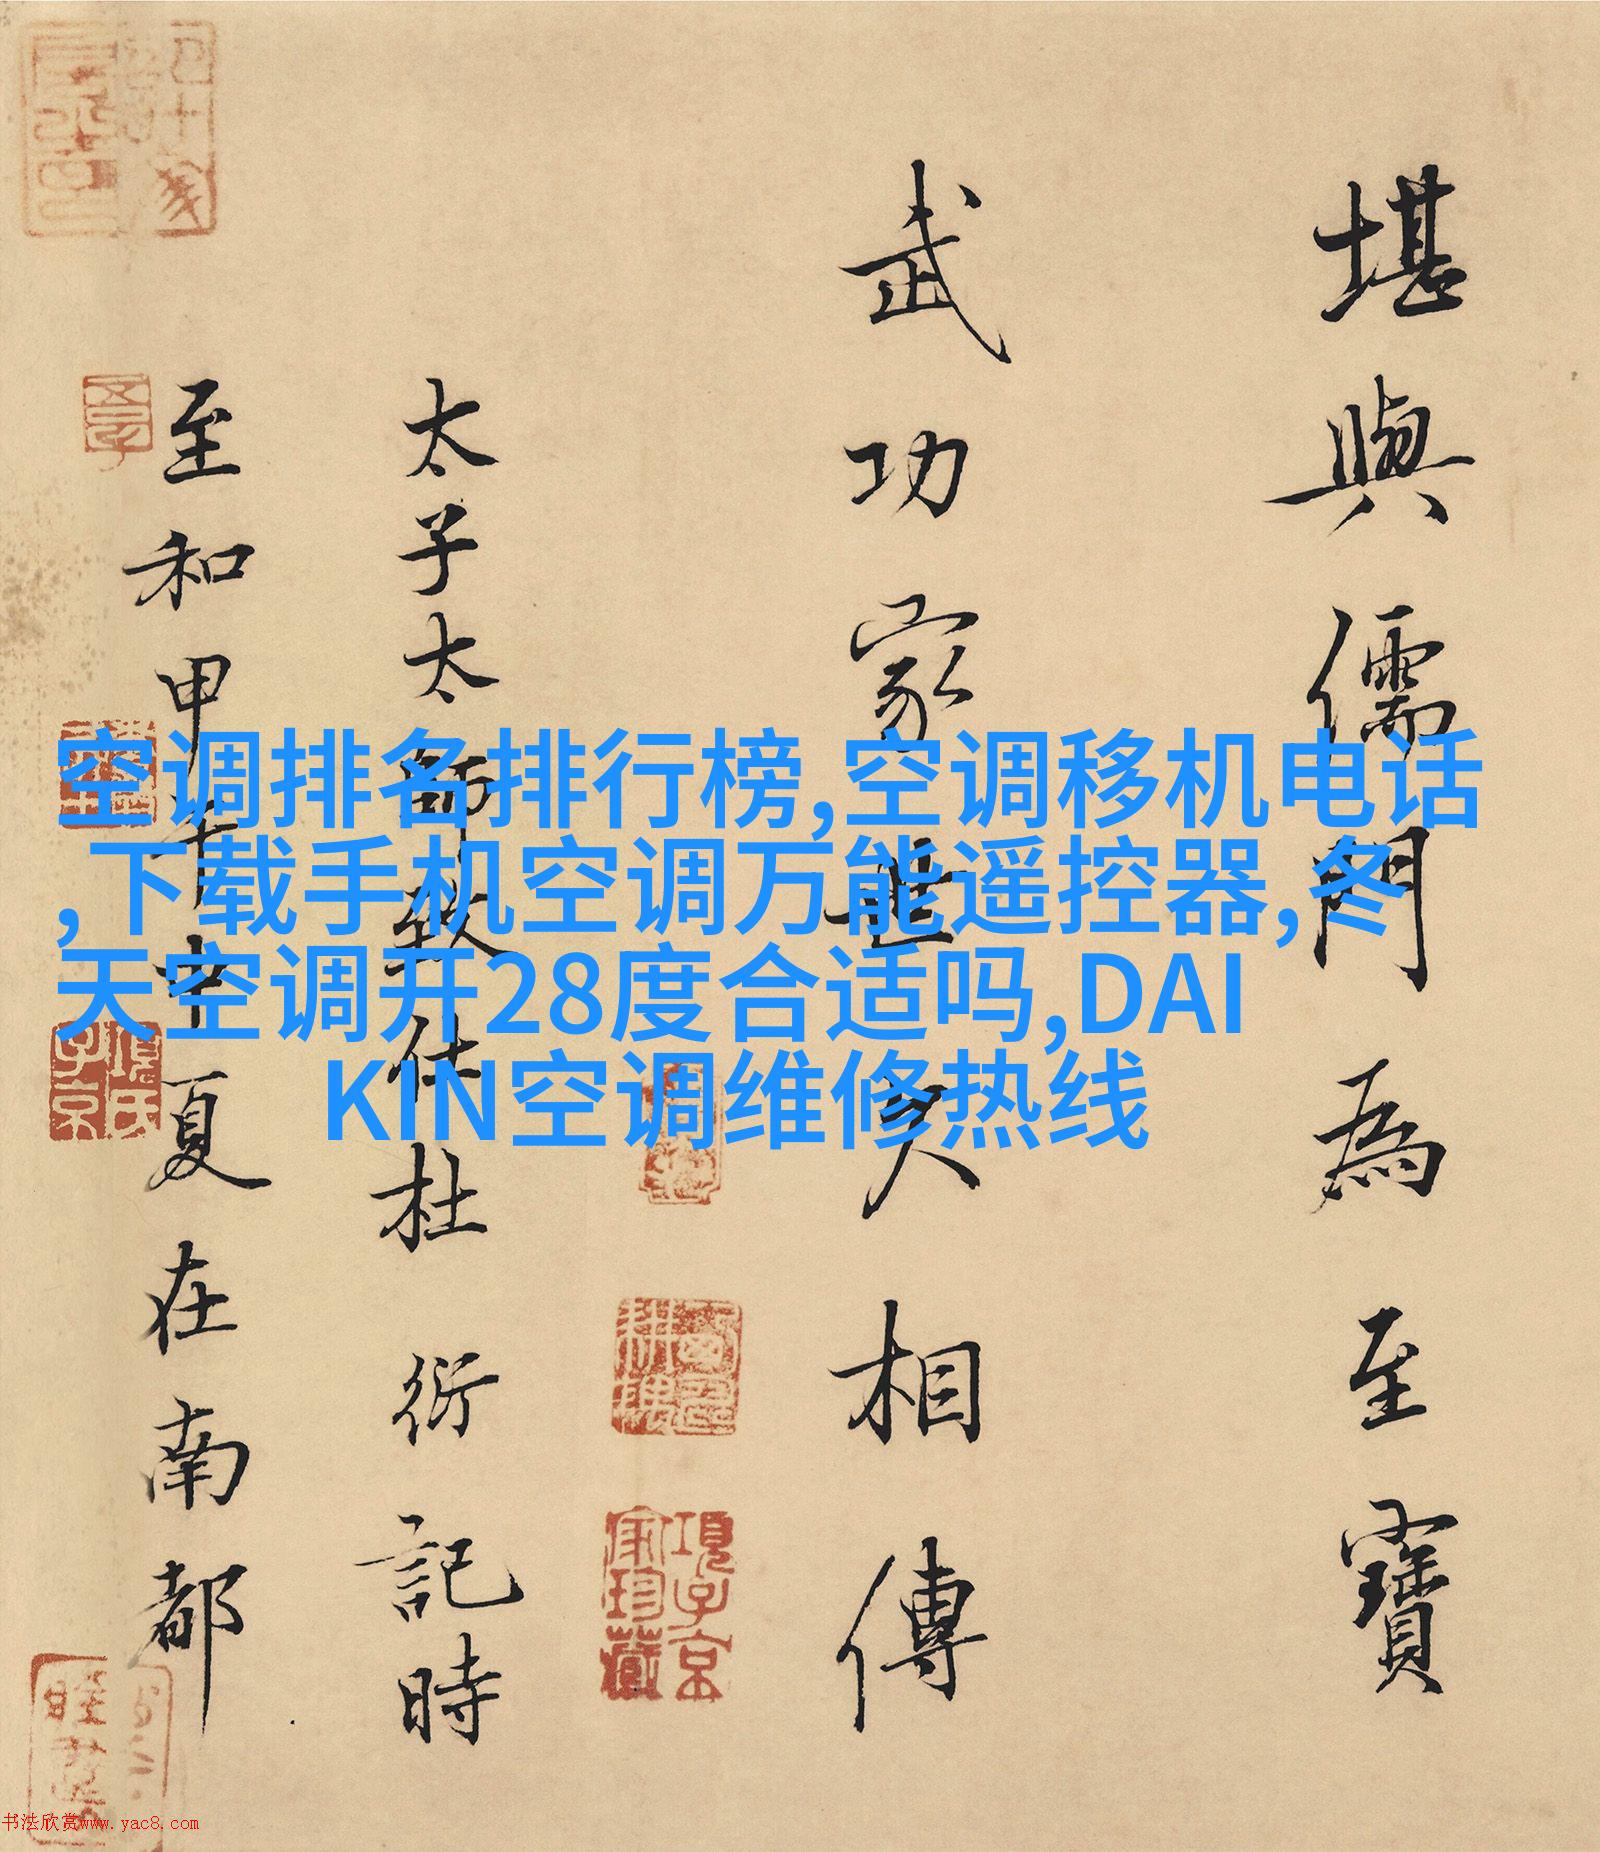 堪輿儒門為至寶
武功家世久相傳
太子太師致仕杜衍記時
至和甲午中夏在南都
空调排名排行榜,空调移机电话
,下载手机空调万能遥控器,冬
天空调开28度合适吗,DAI
KIN空调维修热线
項子京
家珍藏
項氏
子京
书法欣赏www.yac8.com